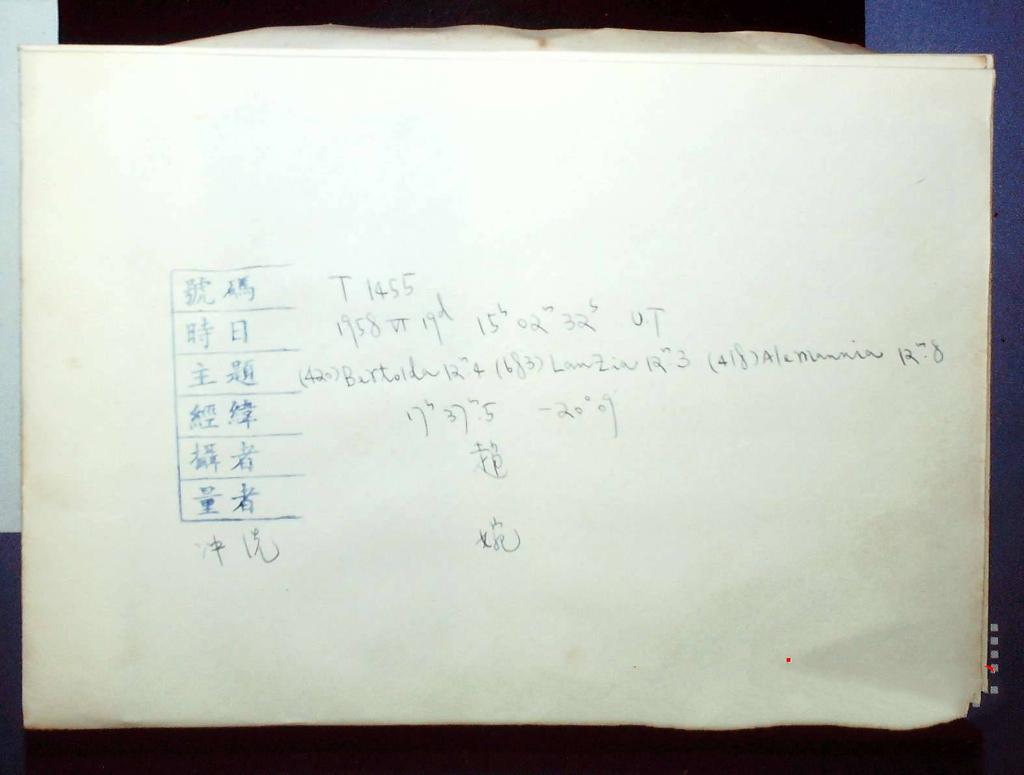 號碼 T 1455
時日 1958 VI 19d 15h 02m 32s UT
主題 (420) Bertolda 12m4 (683) Lanzia 12m3 (418) Alemannia 12m.8
經緯 17h 37m.5 -20°09
攝者 趙
量者
冲洗 婉